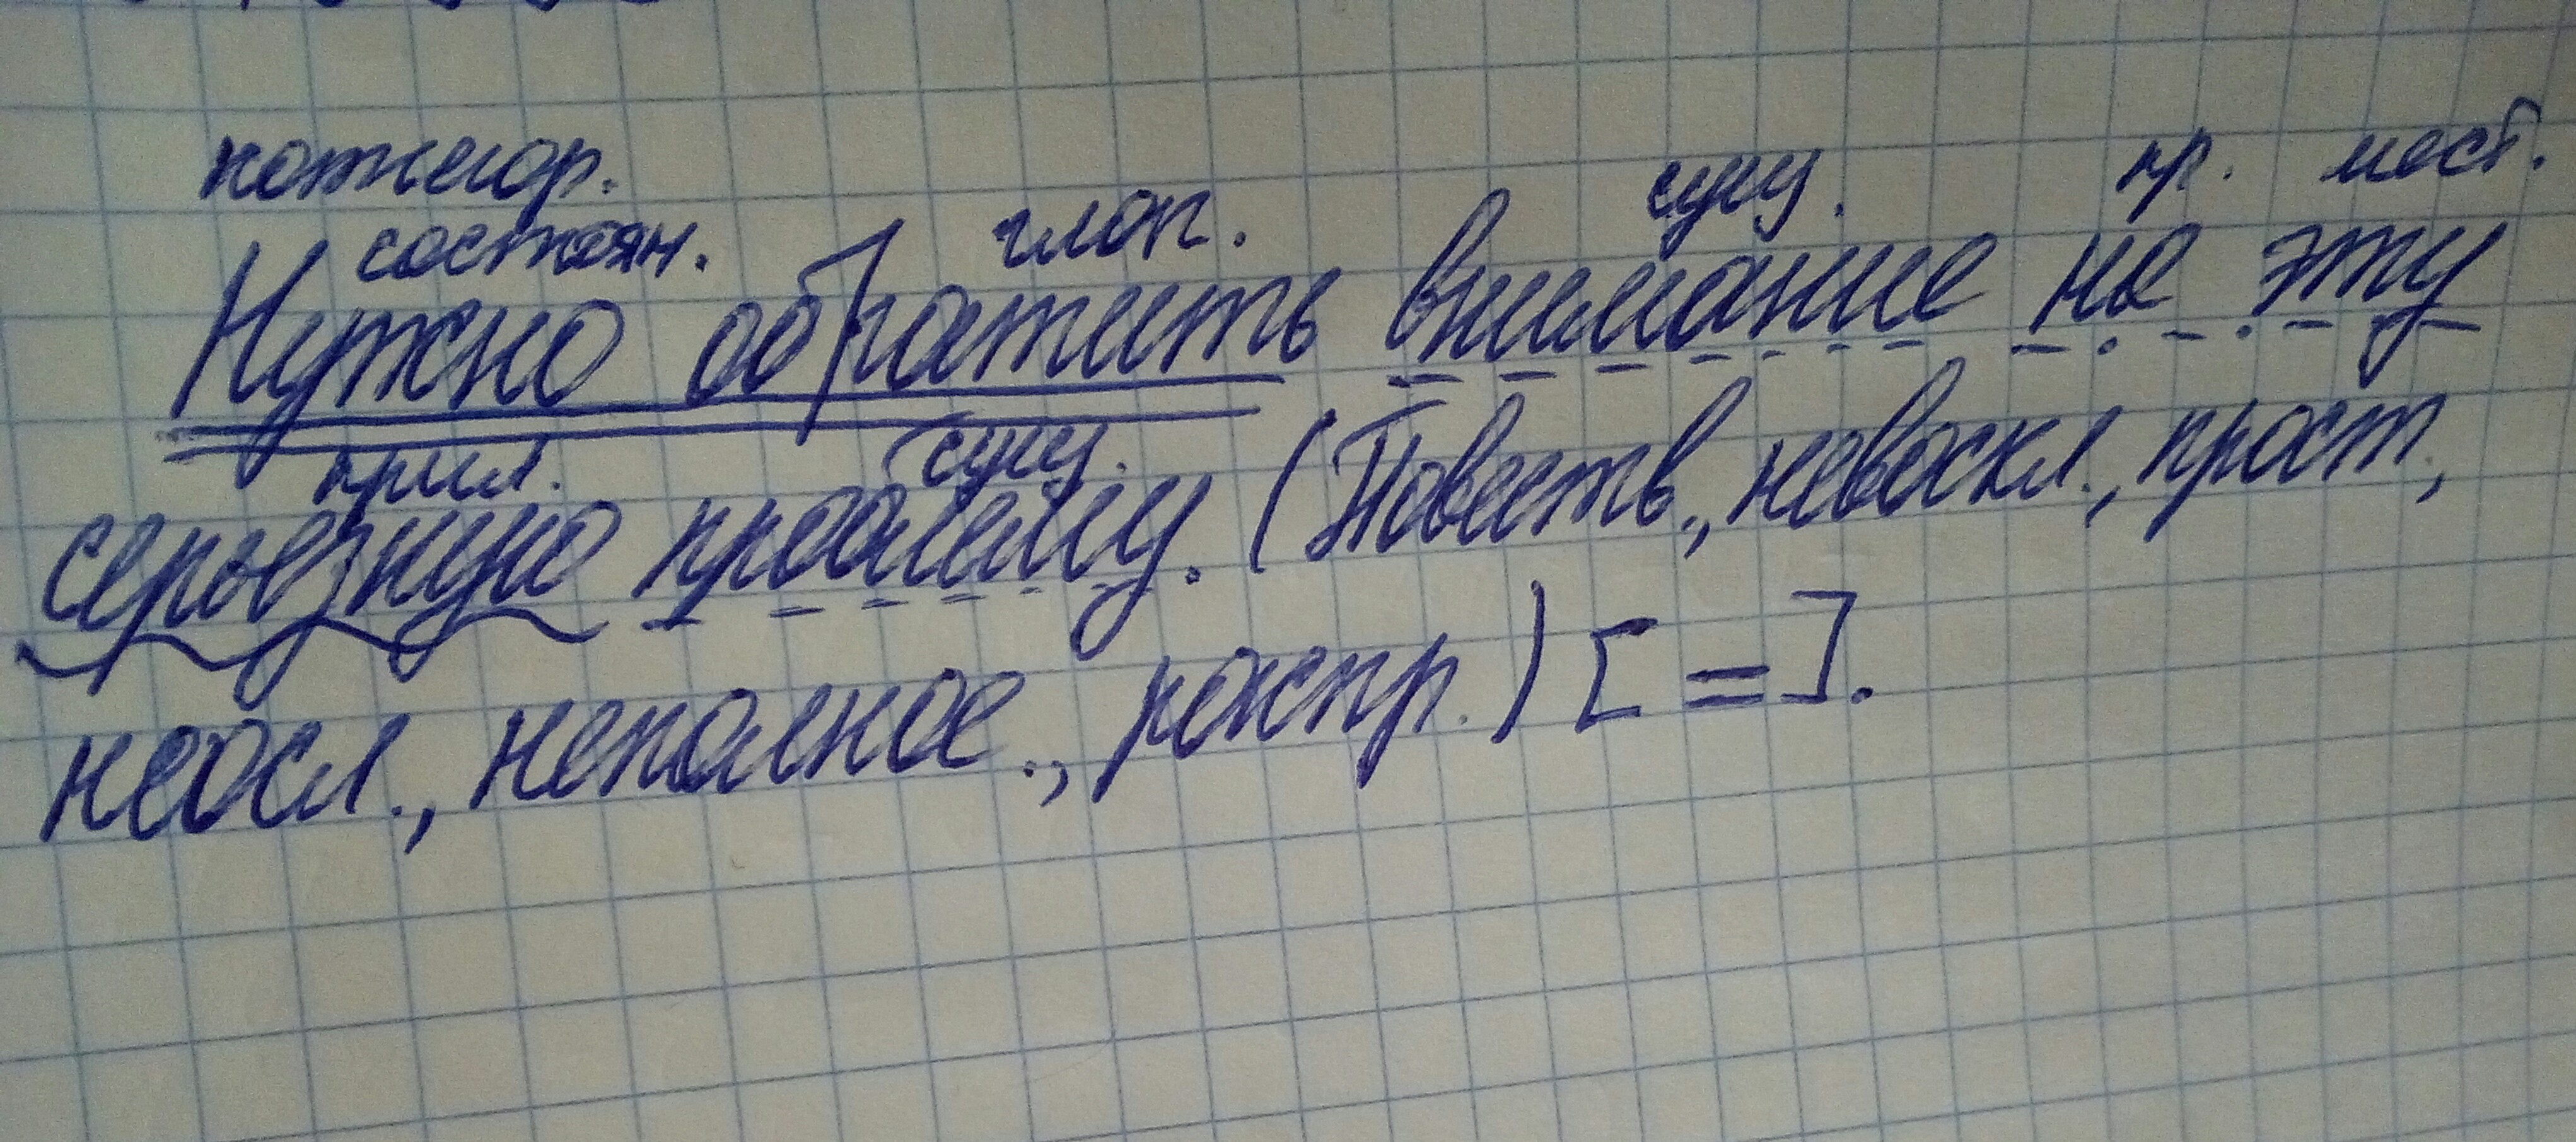 категор.
состоян. глаг. сущ. пр. мест.
Нужно обратить внимание на эту
прил. сущ.
серьезную проблему. (Повеств., невоскл., прост.,
неосл., неполное., распр.) [ = ].